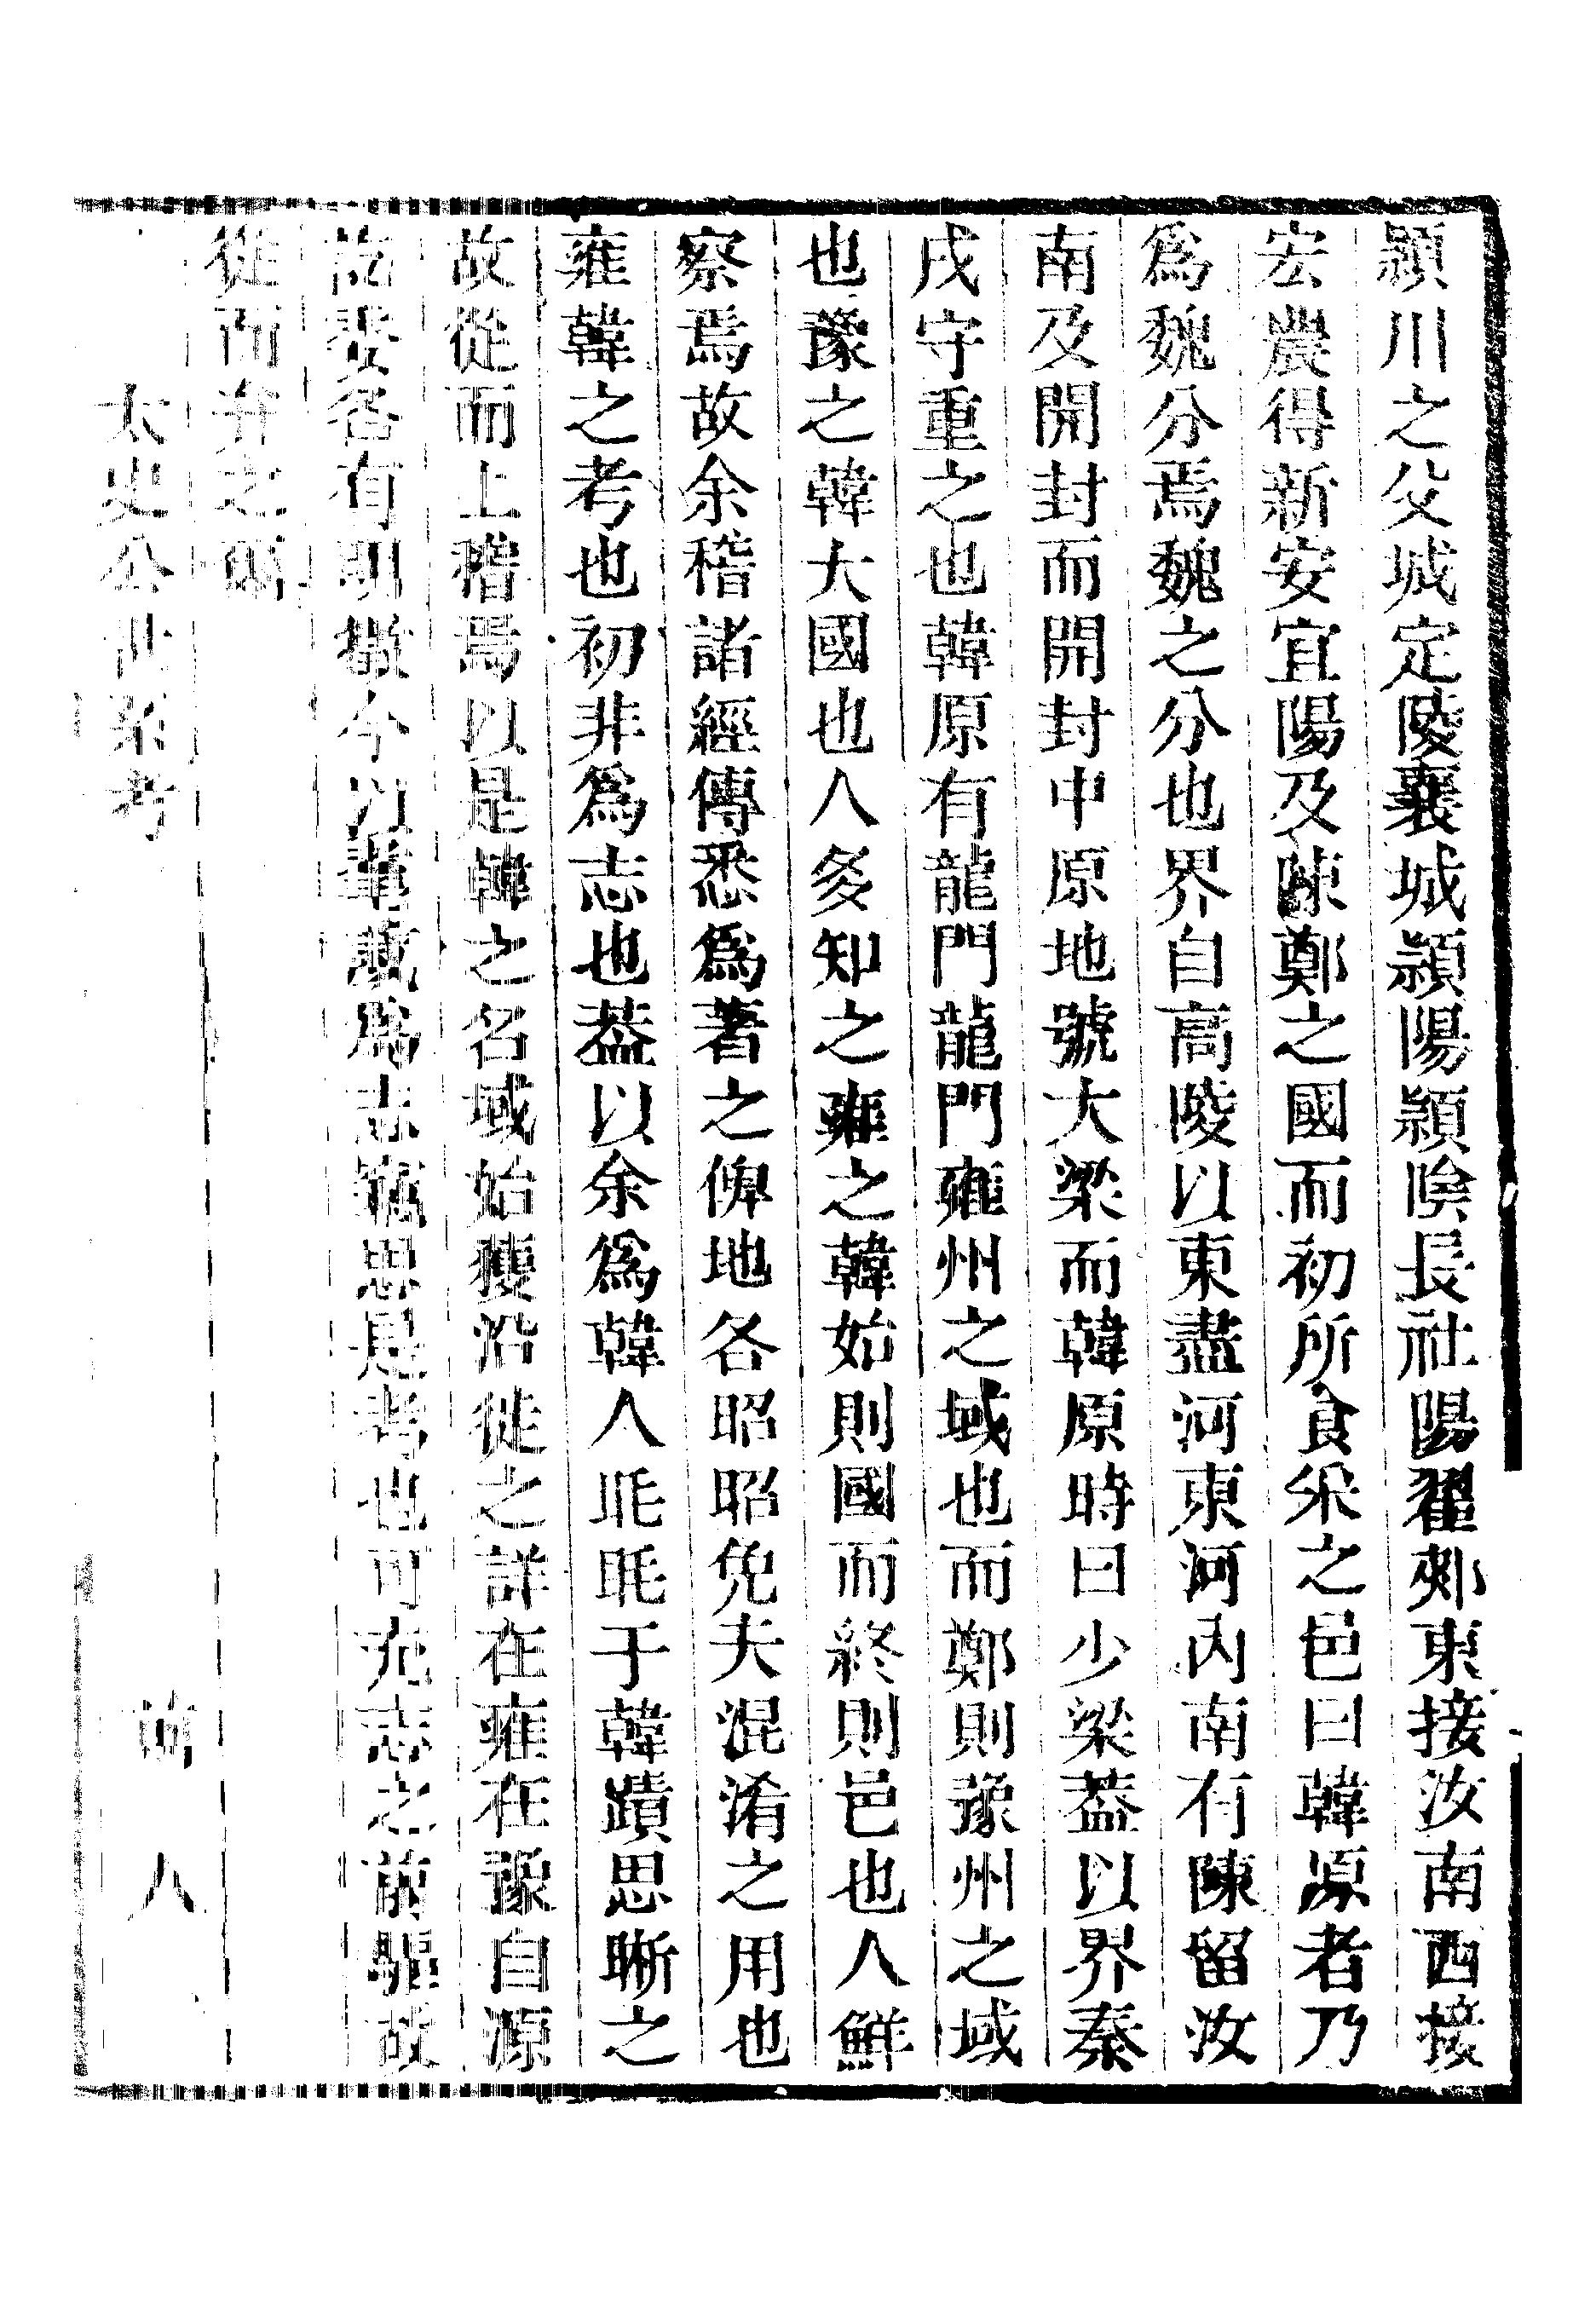 潁川之父城定陵襄城潁陽潁陰長社陽翟郟東接汝南西接
宏農得新安宜陽及陳鄭之國而初所食釆之邑曰韓原者乃
為魏分焉魏之分也界自高陵以東盡河東河內南有陳留汝
南及開封而開封中原地號大梁而韓原時曰少梁葢以界秦
戍守重之也韓原有龍門龍門雍州之域也而鄭則豫州之域
也豫之韓大國也人多知之雍之韓始則國而終則邑也人鮮
察焉故余稽諸經傳悉為著之俾地各昭昭免夫混淆之用也
雍韓之考也初非為志也葢以余為韓人毦毦于韓蹟思晰之
故從而上稽焉以是韓之名域始獲沿徙之詳在雍在豫自源
訖委各有明徵今以葺為志竊思是考也可充志之前驅故
從而弁之
太史公世系考
前
八